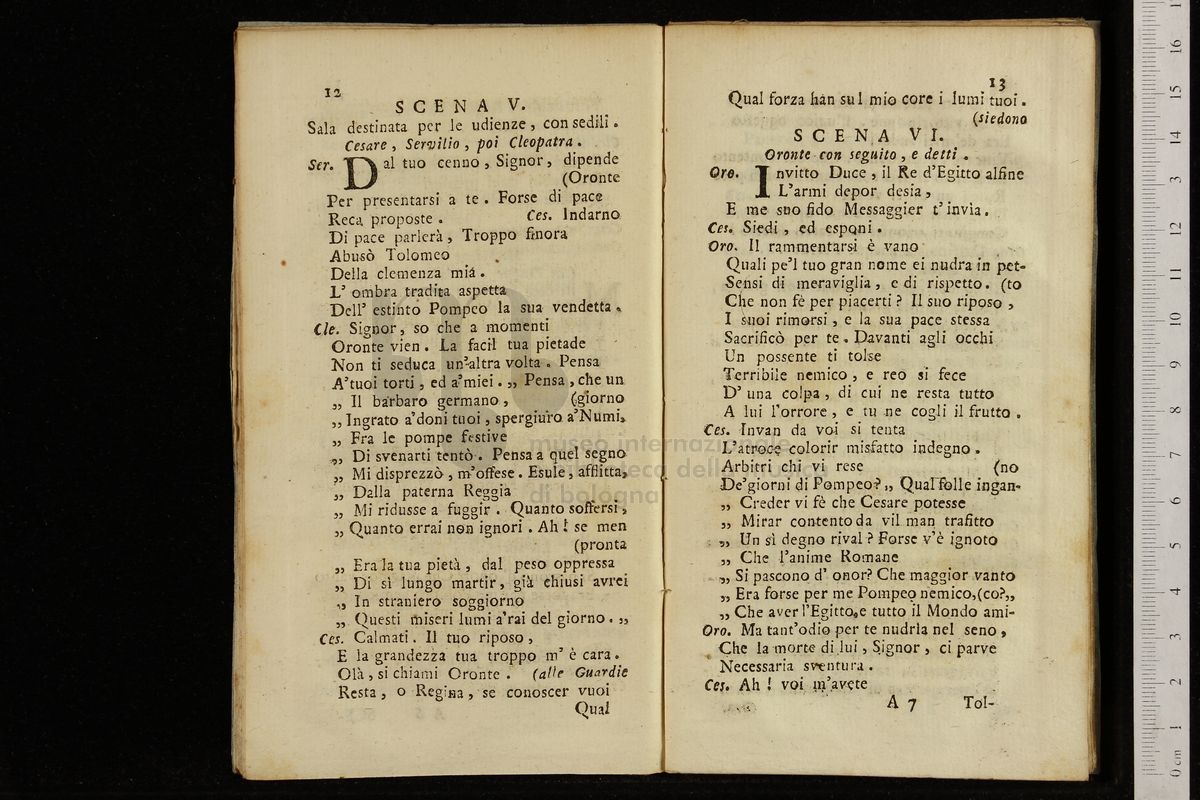 12
SCENA V.
Sala destinata per le udienze, con sedili.
Cesare, Servilio, poi Cleopatra.
Ser. Dal tuo cenno, Signor, dipende
(Oronte
Per presentarsi a te. Forse di pace
Reca proposte. Ces. Indarno
Di pace parlerà, Troppo finora
Abusò Tolomeo
Della clemenza mia.
L' ombra tradita aspetta
Dell' estinto Pompeo la sua vendetta.
Cle. Signor, so che a momenti
Oronte vien. La facil tua pietade
Non ti seduca un'altra volta. Pensa
A'tuoi torti, ed a'miei. „ Pensa, che un
„ Il barbaro germano, (giorno
„ Ingrato a'doni tuoi, spergiuro a'Numi,
„ Fra le pompe festive
„ Di svenarti tentò. Pensa a quel segno
„ Mi disprezzò, m'offese. Esule, afflitta,
„ Dalla paterna Reggia
„ Mi ridusse a fuggir. Quanto soffersi,
„ Quanto errai non ignori. Ah! se men
(pronta
„ Era la tua pietà, dal peso oppressa
„ Di sì lungo martir, già chiusi avrei
„ In straniero soggiorno
„ Questi miseri lumi a'rai del giorno. „
Ces. Calmati. Il tuo riposo,
E la grandezza tua troppo m' è cara.
Olà, si chiami Oronte. (alle Guardie
Resta, o Regina, se conoscer vuoi
Qual
13
Qual forza han sul mio core i lumi tuoi.
(siedono
SCENA VI.
Oronte con seguito, e detti.
Oro. Invitto Duce, il Re d'Egitto alfine
L'armi depor desia,
E me suo fido Messaggier t'invia.
Ces. Siedi, ed esponi.
Oro. Il rammentarsi è vano
Quali pe'l tuo gran nome ei nudra in pet-
Sensi di meraviglia, e di rispetto. (to
Che non fè per piacerti? Il suo riposo,
I suoi rimorsi, e la sua pace stessa
Sacrificò per te. Davanti agli occhi
Un possente ti tolse
Terribile nemico, e reo si fece
D' una colpa, di cui ne resta tutto
A lui l'orrore, e tu ne cogli il frutto.
Ces. Invan da voi si tenta
L'atroce colorir misfatto indegno.
Arbitri chi vi rese (no
De'giorni di Pompeo? „ Qual folle ingan-
„ Creder vi fè che Cesare potesse
„ Mirar contento da vil man trafitto
„ Un sì degno rival? Forse v'è ignoto
„ Che l'anime Romane
„ Si pascono d' onor? Che maggior vanto
„ Era forse per me Pompeo nemico, (co?„
„ Che aver l'Egitto, e tutto il Mondo ami-
Oro. Ma tant'odio per te nudrìa nel seno,
Che la morte di lui, Signor, ci parve
Necessaria sventura.
Ces. Ah! voi m'avete
A 7 Tol-
museo internazionale
e biblioteca della musica
di bologna